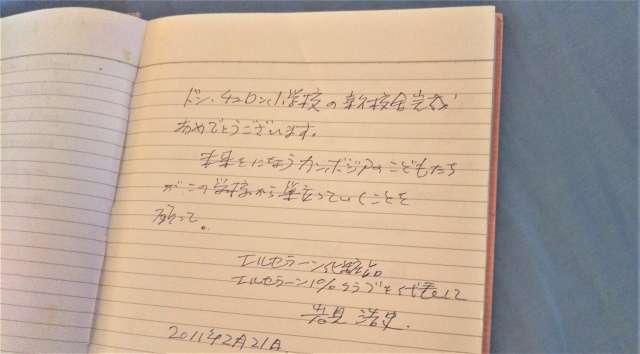 ドン・チュロン小学校の新校舎完成
おめでとうございます。
未来をになうカンボジアのこどもたち
がこの学校から巣立っていくことを
願って。
エルセラーン化粧品
エルセラーン1%クラブを代表して
2011年2月21日